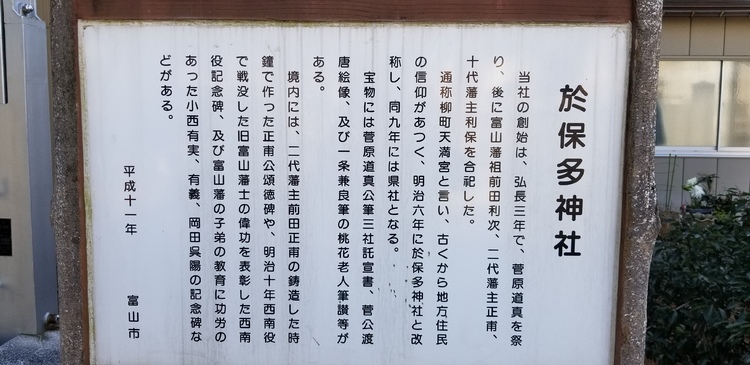 於保多神社
当社の創始は、弘長三年で、菅原道真を祭
り、後に富山藩祖前田利次、二代藩主正甫、
十代藩主利保を合祀した。
通称柳町天満宮と言い、古くから地方住民
の信仰があつく、明治六年に於保多神社と改
称し、同九年には県社となる。
宝物には菅原道真公筆三社託宣書、菅公渡
唐絵像、及び一条兼良筆の桃花老人筆讃等が
ある。
境内には、二代藩主前田正甫の鋳造した時
鐘で作った正甫公頌徳碑や、明治十年西南役
で戦没した旧富山藩士の偉功を表彰した西南
役記念碑、及び富山藩の子弟の教育に功労の
あった小西有実、有義、岡田呉陽の記念碑な
どがある。
平成十一年　富山市